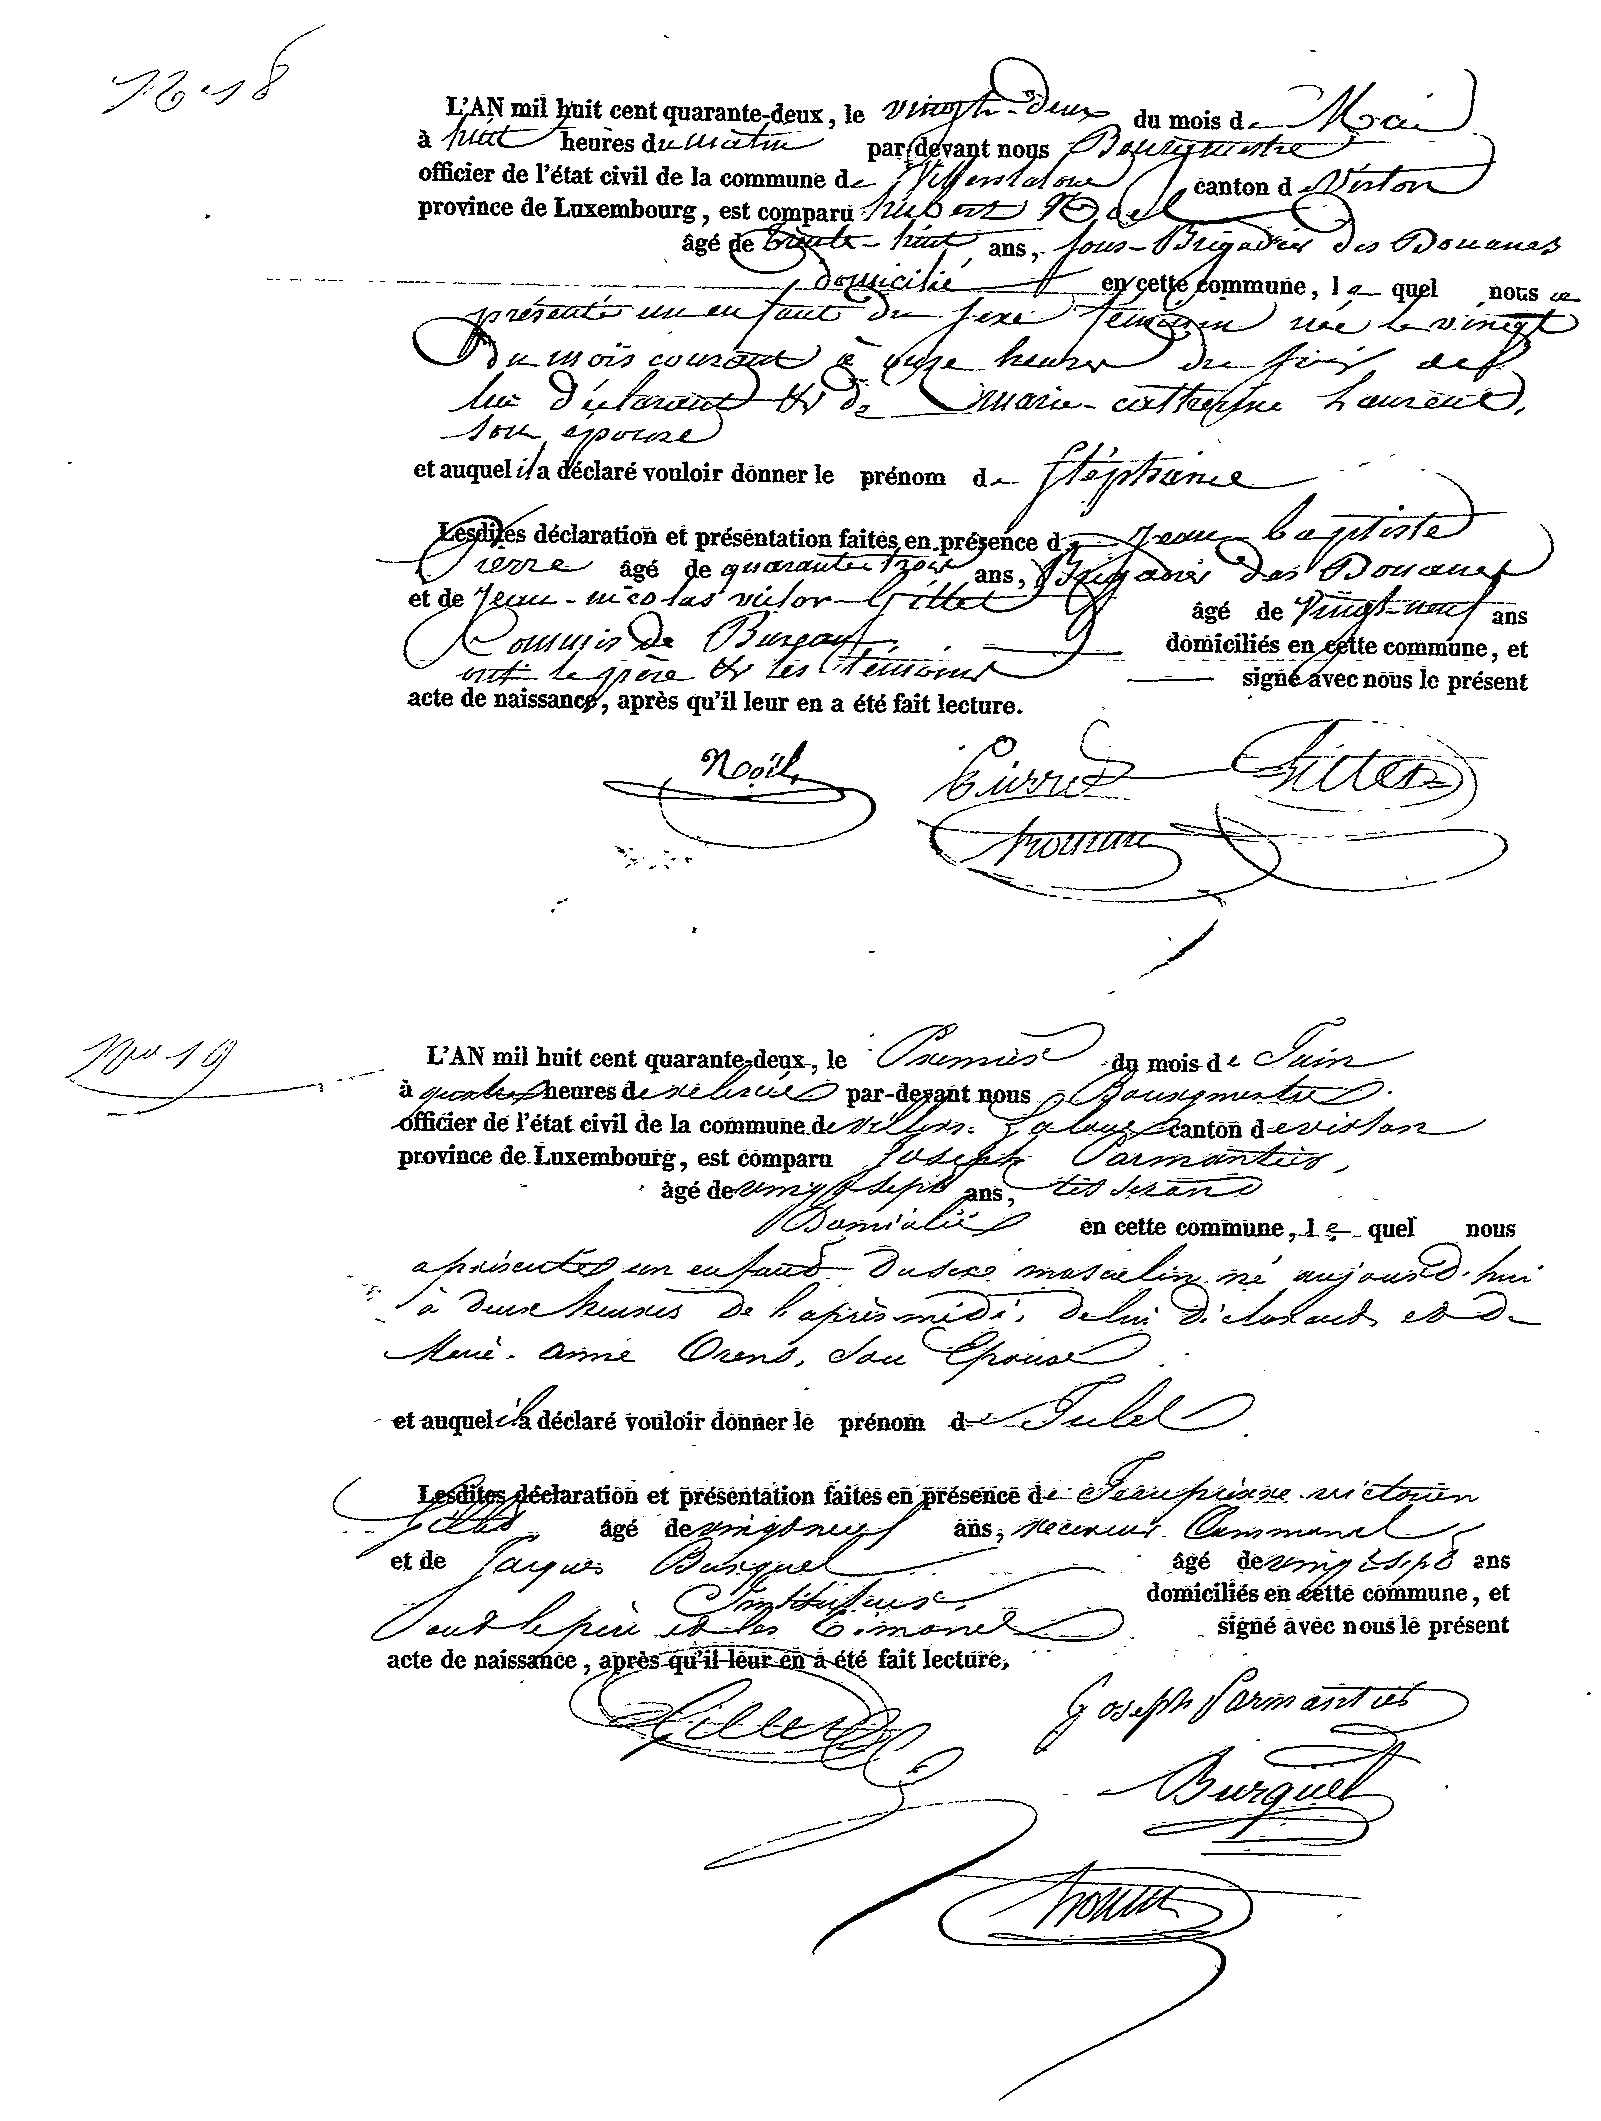 No 18
L'AN mil huit cent quarante-deux, le vingt-deux du mois de Mai
à huit heures du matin par devant nous Bourgmestre
officier de l'état civil de la commune de Villers la loue canton de Virton
province de Luxembourg, est comparu hubert Noël
âgé de trente-huit ans, sous-Brigadier des Douanes
domicilié en cette commune, le quel nous a
présenté un enfant du sexe féminin née le vingt
Du mois courant à onze heures du soir de
lui Déclarant & de marie-catherine Laurent,
son épouse
et auquel il a déclaré vouloir donner le prénom de Stéphanie
Lesdites déclaration et présentation faites en présence de Jean baptiste
Pierre âgé de quarante trois ans, Brigadier des Douanes
et de Jean-nicolas victor Gillet âgé de Vingt-neuf ans
Commis de Bureau domiciliés en cette commune, et
ont le père & les témoins signé avec nous le présent
acte de naissance, après qu'il leur en a été fait lecture.
Noël Pierret Gillet
No 19
L'AN mil huit cent quarante-deux, le Premier du mois de Juin
à quatre heures de relevée par-devant nous Bourgmestre
officier de l'état civil de la commune de villers-Laloue canton de virton
province de Luxembourg, est comparu Joseph Parmentier,
âgé de vingt sept ans, tisserand
Domicilié en cette commune, le quel nous
a présenté un enfant du sexe masculin né aujourd'hui
à deux heures de l'après midi, de lui Déclarant et de
Marie-anne Orens, son Epouse
et auquel il a déclaré vouloir donner le prénom de Jules
Lesdites déclaration et présentation faites en présence de Jean pierre victorien
Gillet âgé de vingt neuf ans, receveur Communal
et de Jacques Burquel âgé de vingt sept ans
Instituteur domiciliés en cette commune, et
ont le père et les témoins signé avec nous le présent
acte de naissance, après qu'il leur en a été fait lecture,
Gillet Joseph Parmentier
Burquel